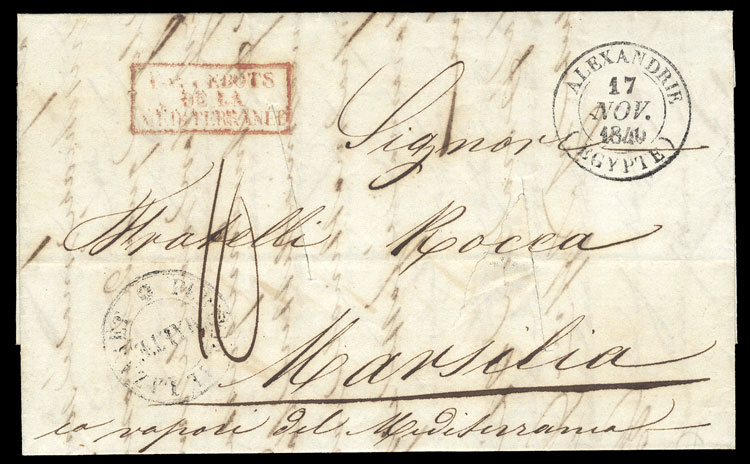 PAQUEBOTS
DE LA
MÉDITERRANÉE
ALEXANDRIE
17
NOV.
1840
(EGYPTE)
Signori
Fratelli Rocca
16
Marsilia
co vapori del Mediterraneo